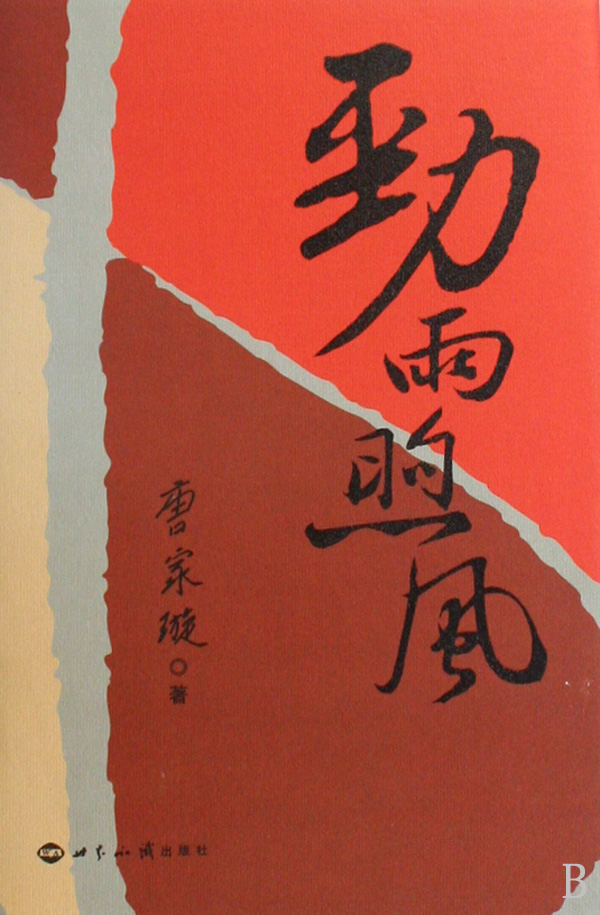 勁雨煦風
唐家璇◎著
WA 世界知識出版社
B